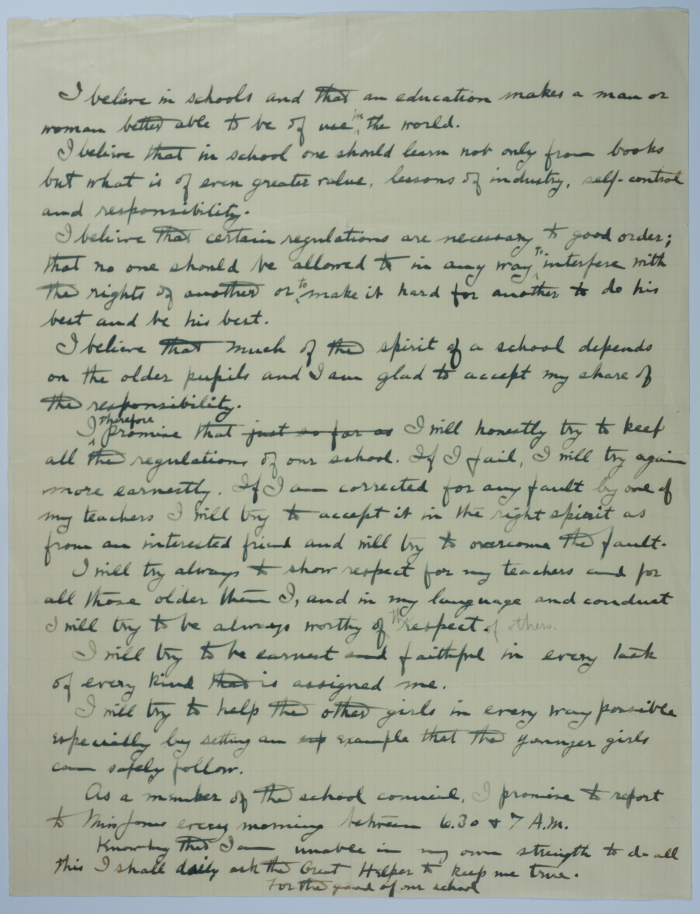 I believe in schools and that an education makes a man or
woman better able to be of use in the world.
I believe that in school one should learn not only from books
but what is of even greater value, lessons of industry, self-control
and responsibility.
I believe that certain regulations are necessary to good order;
that no one should be allowed to in any way to interfere with
the rights of another or to make it hard for another to do his
best and be his best.
I believe that much of the spirit of a school depends
on the older pupils and I am glad to accept my share of
the responsibility.
I therefore promise that just so far as I will honestly try to keep
all the regulations of our school. If I fail, I will try again
more earnestly. If I am corrected for any fault by one of
my teachers I will try to accept it in the right spirit as
from an interested friend and will try to overcome the fault.
I will try always to show respect for my teachers and for
all those older than I, and in my language and conduct
I will try to be always worthy of the respect of others.
I will try to be earnest and faithful in every task
of every kind that is assigned me.
I will try to help the other girls in every way possible
especially by setting an exp example that the younger girls
can safely follow.
As a member of the school council, I promise to report
to Miss Jones every morning between 6.30 & 7 A.M.
Knowing that I am unable in my own strength to do all
this I shall daily ask the Great Helper to keep me true.
For the good of our school